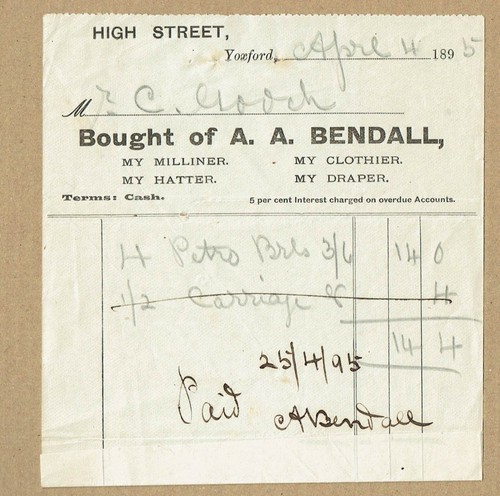 HIGH STREET,
Yoxford, April 4 1895
M r C. Gooch
Bought of A. A. BENDALL,
MY MILLINER. MY CLOTHIER.
MY HATTER. MY DRAPER.
Terms: Cash. 5 per cent Interest charged on overdue Accounts.
4 Petro Brls 3/6 14 0
1/2 Carriage 8 4
14 4
25/4/95
Paid ABendall